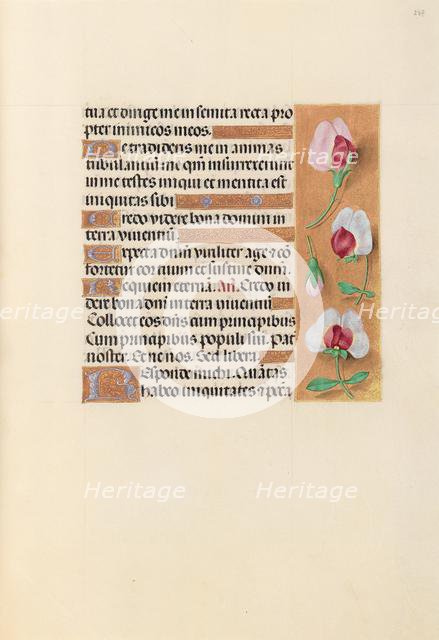 247
tua et dirige me in semita recta pro
pter inimicos meos.
Ne tradideris me in animas
tribulantium me qm insurrexerunt
in me testes iniqui et mentita est
iniquitas sibi
Credo videre bona domini in
terra viventium
Expecta dnm viriliter age et co
fortetur cor tuum et sustine dnm.
Requiem eternā. An. Credo vi
dere bona dnī in terra viventiū
Collocet eos dns cum principibus
Cum principibus populi sui. Pat
noster. Et ne nos. Sed libera
Responde michi. Quātas
habeo iniquitates et pccā
Heritage
Heritage
Heritage
Heritage
Heritage
Heritage
Heritage